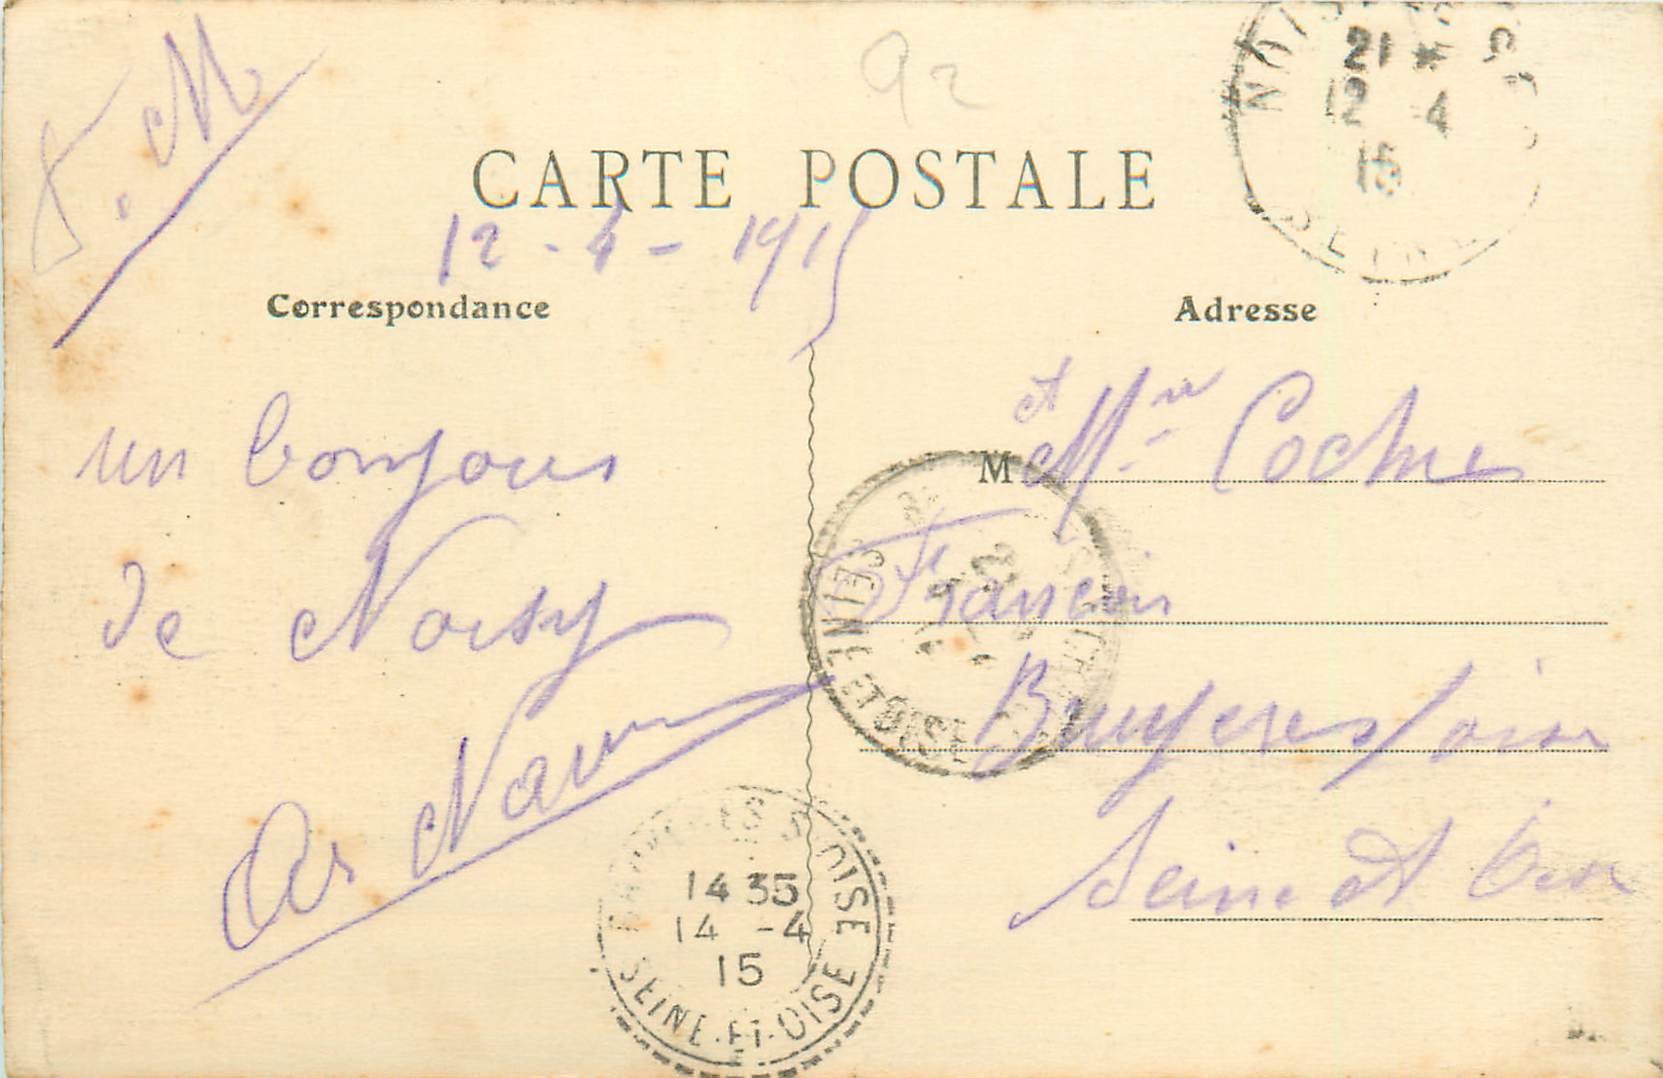 F. M
92
CARTE POSTALE
12 - 4 - 1915
Correspondance
Adresse
un bonjour
de Noisy
NOIS
21 *
12 -4
15
SEINE
M et Mme Coche
François
Bruyeres / oise
Seine et Oise
SEINE ET OISE
S. OISE
14 35
14 -4
15
SEINE-ET-OISE